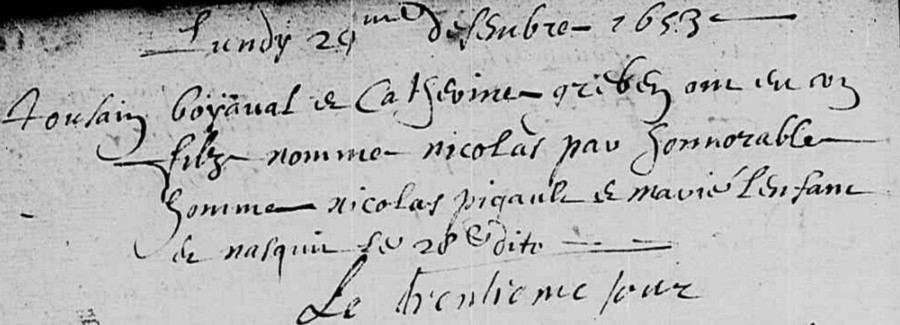 Lundy 29me desenbre 1653
Tousain boyaval et Catherine greben ont eu un
filz nomme nicolas par honnorable
homme nicolas pigault et marie lenfant
et nasquit le 28e dito
Le trentieme jour